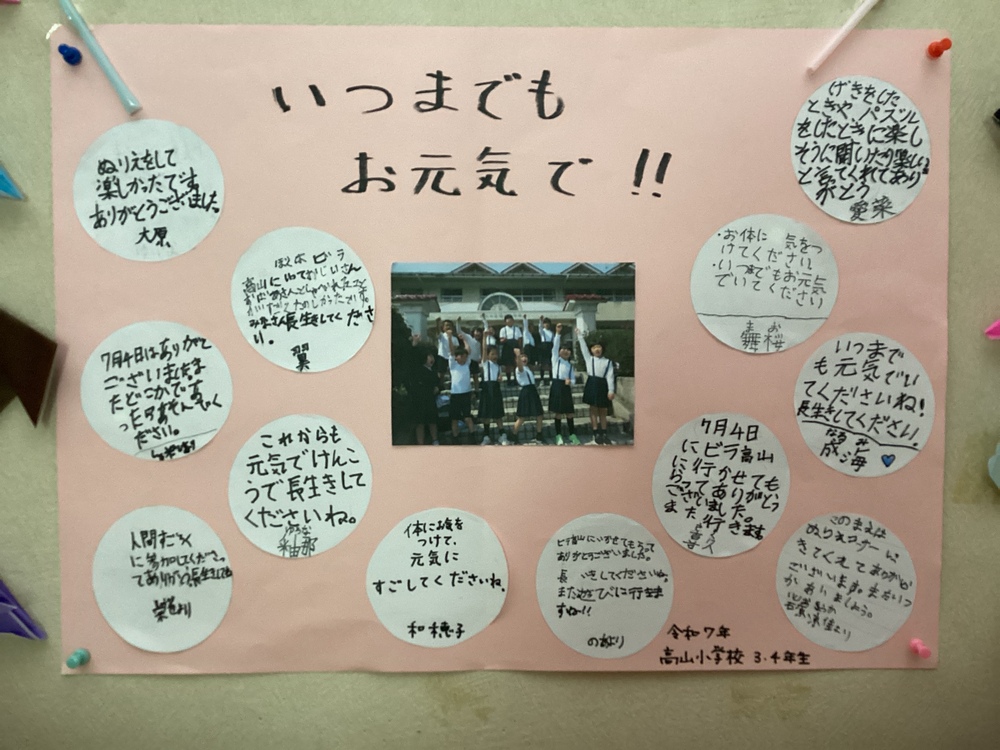 いつまでも
お元気で!!
ぬりえをして
楽しかったです
ありがとうございました
大原
げきをした
ときや、パズル
をしたときに楽し
そうに聞いたり楽しい
と言ってくれてあり
がとう
愛菜
高山に
おじいさん
みなさん長生きしてくださ
い。
翼
・お体に 気をつ
けてください
・いつまでもお元気
でいてください
まお
舞桜
7月4日はありがと
ございました
たどこかで
ください。
いつまで
も元気でい
てくださいね!
長生きしてください。
なるみ
成海
これからも
元気でけんこ
うで長生きして
くださいね。
柚那
7月4日
にビラ高山
に行かせても
らってありがとう
ございました。
また行きます
喜久
人間すごろく
に参加してくださっ
てありがとう長生きしてね
体にお気を
つけて、
元気に
すごしてくださいね。
和穂子
ビラ高山にいかせてもらって
ありがとうございました。
長いきしてくださいね。
また遊びに行きま
すね!!
より
ぬりえコーナーに
きてくれてありがと
ございます。
より
令和7年
高山小学校 3.4年生